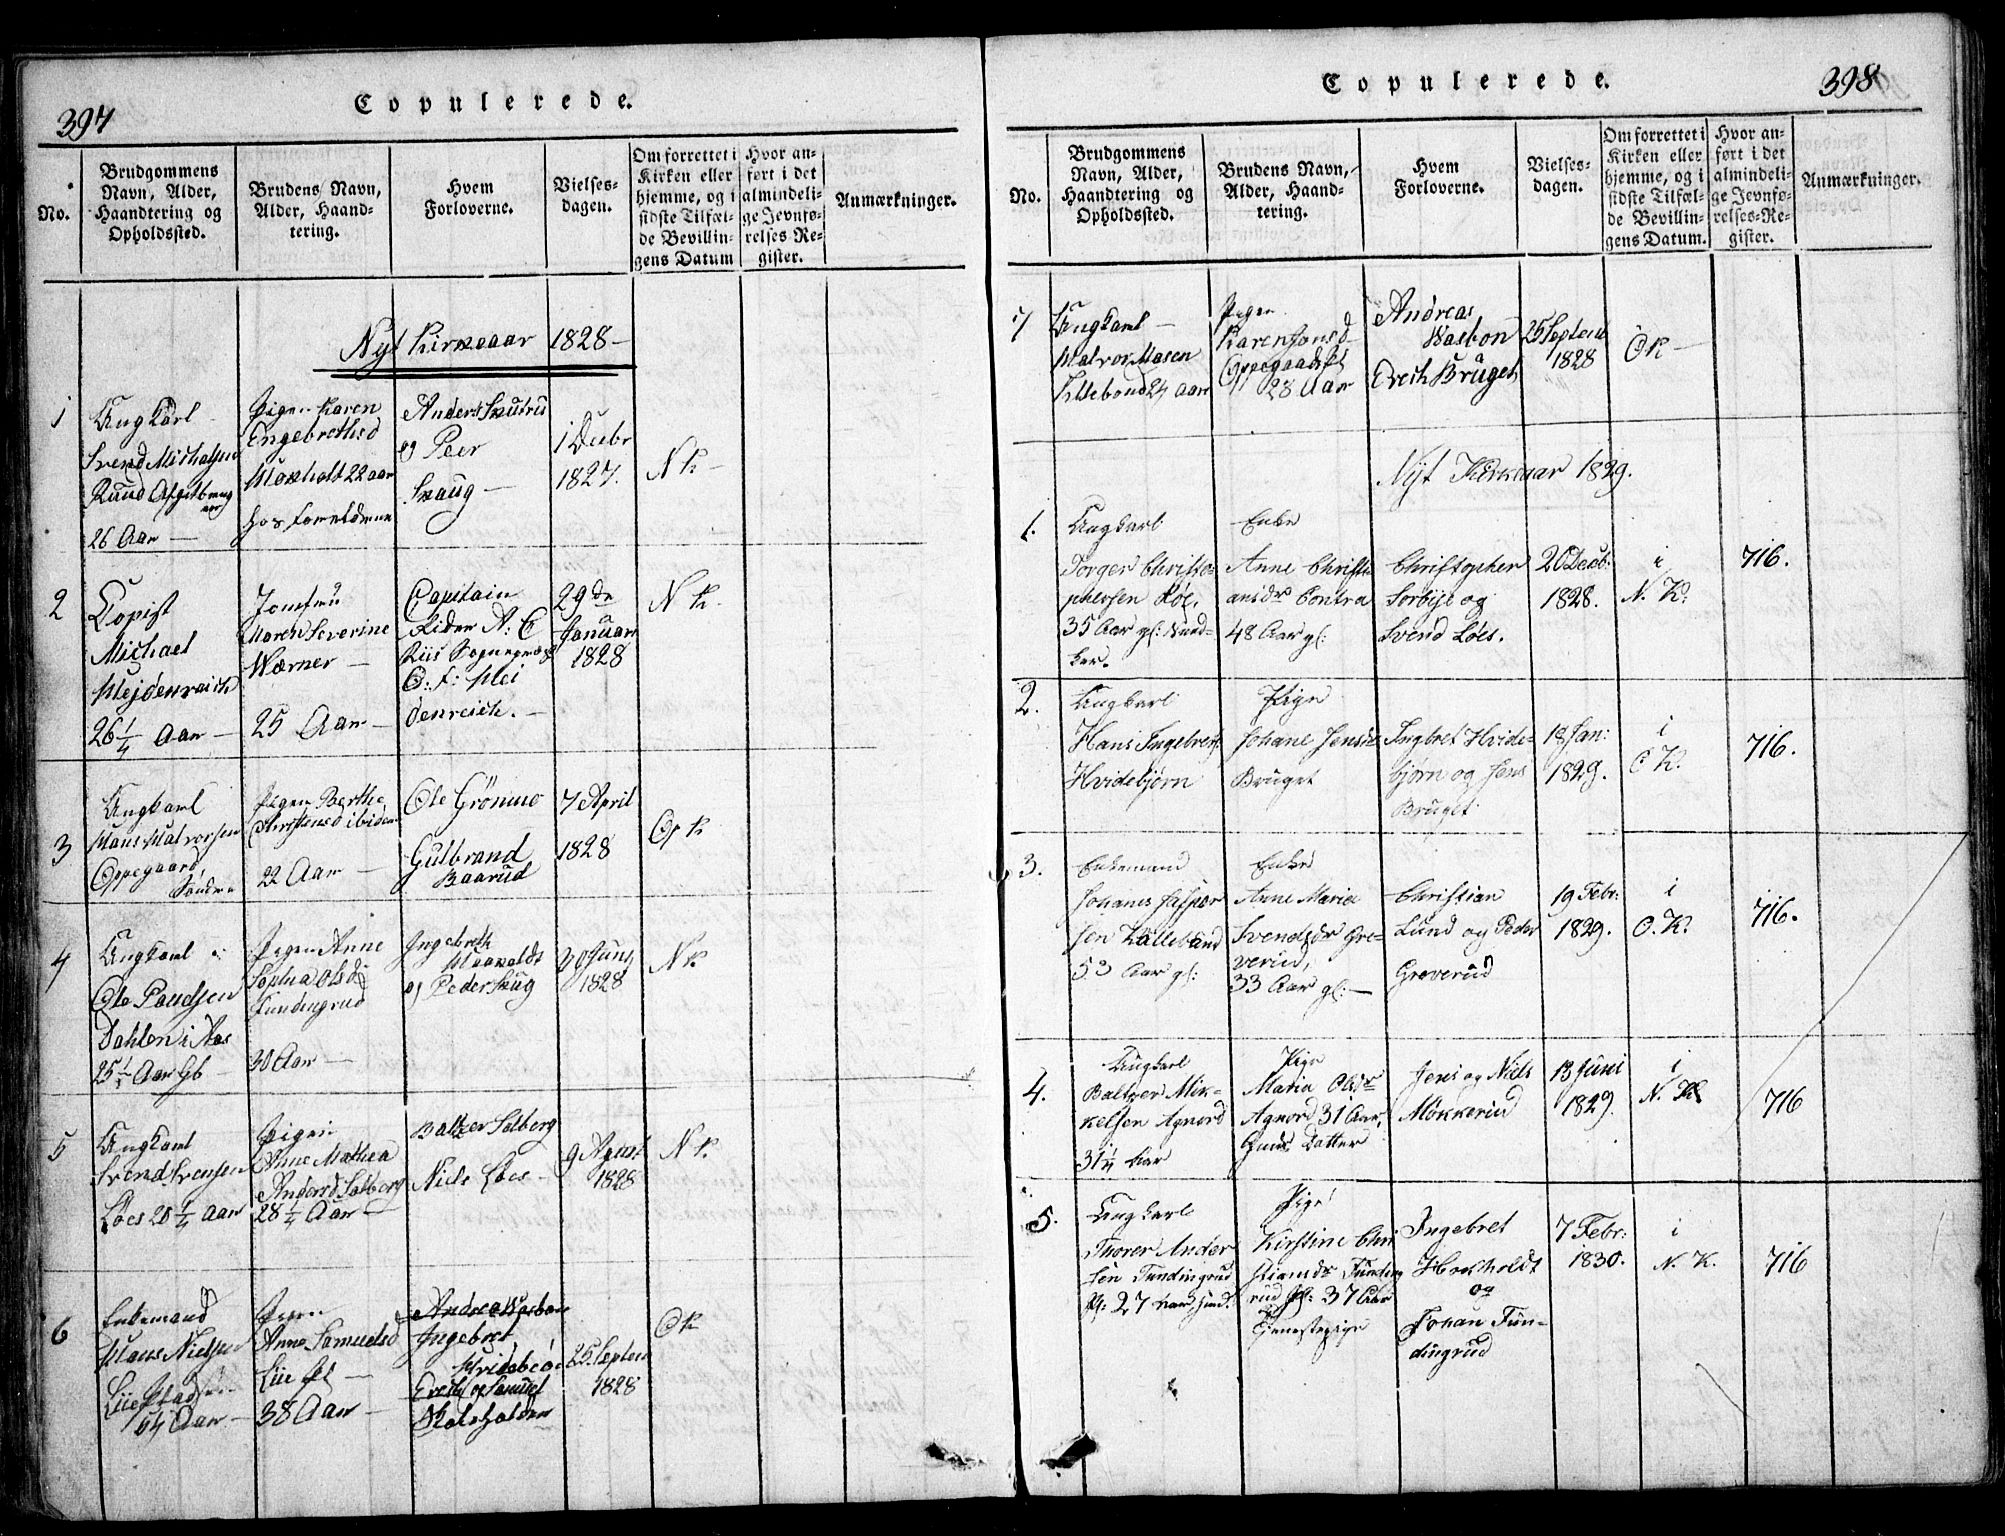 397
Copulerede.
No.
Brudgommens
Navn, Alder,
Haandtering og
Opholdssted.
Brudens Navn,
Alder, Haand-
tering.
Hvem
Forloverne.
Vielses-
dagen.
Om forrettet i
Kirken eller
hjemme, og i
sidste Tilfæl-
de Bevillin-
gens Datum
Hvor an-
ført i det
almindeli-
ge Jevnfø-
relses Re-
gister.
Anmærkninger.
Nyt Kirkeaar 1828
1
Ungkarl
Svend Michelsen
Ruud
26 Aar
Pigen Karen
Engebrethsd
22 aar
hos Forældrene
Anders Skutrü
og Peer
Skaug
1 Decbr
1827.
N K
2
Copist
Michael
Hejdenreich
26 1/4 Aar
Jomfru
Maren Severine
Wærner
25 Aar
Capitain
Rider A: C
Riis
C: F: Hei
denreich.
29de
Januar
1828
N K.
3
Ungkarl
Hans Halvorsen
Oppegaard
Søndre
Pigen Berthe
Christensd ibiden
22 Aar
Ole Grönmo
Gulbrand
Baarud
7 April
1828
Op K
4
Ungkarl
Ole Poulsen
Dahlen i Aas
25 1/2 Aar Gb
Pigen Anne
Sophia Olsd
Fundingrud
30 Aar
Ingebreth
og Peder Skug
30 Juni
1828
N K
5
Ungkarl
Svend Svensen
Löes 20 1/4 Aar
Pigen
Anne Mathea
Andersd Solberg
28 1/4 Aar
Baltzer Solberg
Niels Löes
9 Agust
1828
N K.
6
Enkemand
Hans Nielsen
Liie
64 Aar
Pigen
Anne Samuelsd
Liie
38 Aar
Andreas Wasbon
Ingebret
Hvidebiön
Erich og Samuel
Skoleholder
25 Septem
1828
O K
398
Copulerede.
No.
Brudgommens
Navn, Alder,
Haandtering og
Opholdssted.
Brudens Navn,
Alder, Haand-
tering.
Hvem
Forloverne.
Vielses-
dagen.
Om forrettet i
Kirken eller
hjemme, og i
sidste Tilfæl-
de Bevillin-
gens Datum.
Hvor an-
ført i det
almindeli-
ge Jevnfø-
relses-Re-
gister.
Anmærkninger.
7
Ungkarl
Halvor Hasen
Kullebond 24 aar
Pigen
Karen Jonsd
Oppegaard
28 Aar
Andreas
Wasbon
Erich Bruget
25 Septem
1828
O K
Nyt Kirkeaar 1829.
1.
Ungkarl
Torger Christo-
phersen Löe,
35 Aar gl:
Enke
Anne Christi
ansdr Contra
48 Aar gl:
Christopher
Sorbije og
Svend Löes.
20 Decb:
1828.
i
N. K.
716.
2.
Ungkarl
Hans Ingebretss.
Hvidebjørn
Pige
Johane Jensdr
Bruget
Ingbret Hvide-
bjørn og Jens
Bruget
18 Jan:
1829.
i
O K.
716.
3.
Enkemand
Johanes Jesper
sen Kullebund
53 Aar gl:
Enke
Anne Maria
Svendsdr Gre-
verud,
33 Aar gl:
Christian
Lund og Peder
Greverud
19 Febr:
1829.
i
O. K.
716.
4.
Ungkarl
Baltzer Mik-
kelsen Agnord
31 1/4 Aar
Pige
Maria Olsdr
Agnord 31 Aar,
Gmds. Datter
Jens og Niels
Mökkerud
18 Juni
1829.
i
N. K
716
5.
Ungkarl
Thorer Ander
sen Fundingrud
gl: 27 Aar,
Pige
Kirstine Chri
stiansdr Funding
rud gl: 37 Aar
Tjenestepige
Ingebret
Hoxholdt
og
Johan Fun-
dingrud
7 Febr:
1830.
i
N. K.
716